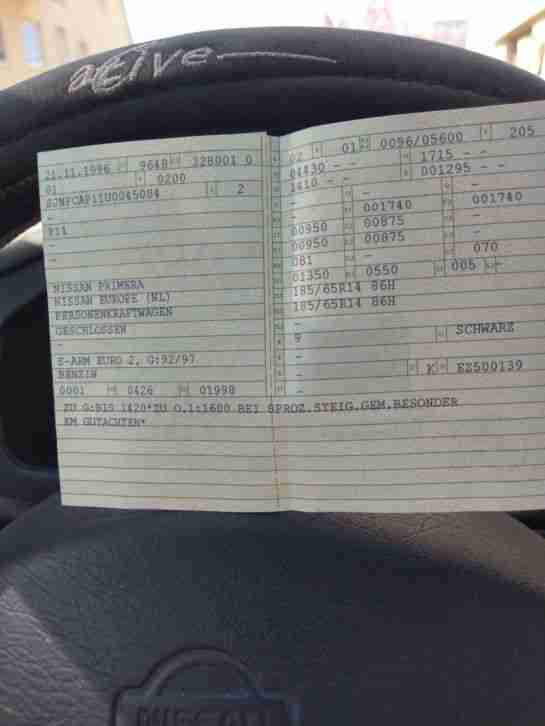 active
21.11.1996 9648 328001 0
01 - 0200
SJNFCAP11U0045084 2
-
P11
-
-
NISSAN PRIMERA
NISSAN EUROPE (NL)
PERSONENKRAFTWAGEN
GESCHLOSSEN
-
S-ARM EURO 2, G:92/97
BENZIN
0001 0426 01998
02 01 0096/05600 205
04430 - - 1715 - -
1410 - - 001295 - -
- - -
- 001740 001740
00950 00875 -
00950 00875 -
081 - 070
01350 0550 005 -
185/65R14 86H
185/65R14 86H
-
-
9 SCHWARZ
-
- K EZ500139
-
ZU G:BIS 1420*ZU O.1:1600 BEI 8PROZ.STEIG.GEM.BESONDER
EM GUTACHTEN*
NISSAN